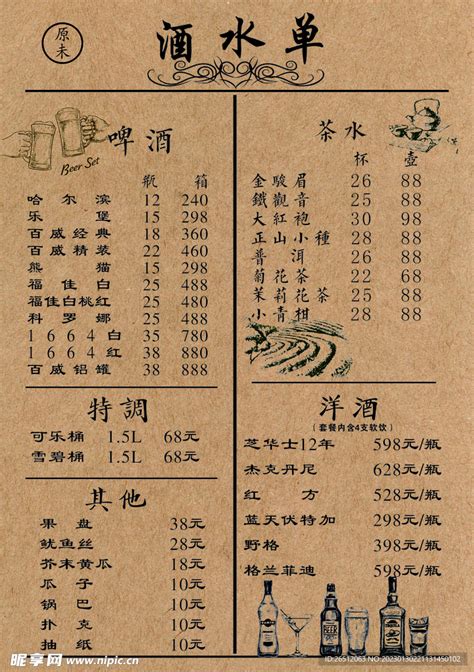 原未
酒水单
Beer Set
啤酒
瓶 箱
哈尔滨 12 240
乐堡 15 298
百威经典 18 360
百威精装 22 460
熊猫 15 298
福佳白 25 488
福佳白桃红 25 480
科罗娜 25 488
1664白 35 780
1664红 38 880
百威铝罐 38 888
特調
可乐桶 1.5L 68元
雪碧桶 1.5L 68元
其他
果盘 38元
鱿鱼丝 28元
芥末黄瓜 18元
瓜子 10元
锅巴 10元
扑克 10元
抽纸 10元
茶水
杯 壶
金駿眉 26 88
鐵觀音 25 88
大紅袍 30 98
正山小種 28 88
普洱 26 88
菊花茶 22 68
茉莉花茶 25 88
小青柑 28 88
洋酒
（套餐内含4支软饮）
芝华士12年 598元/瓶
杰克丹尼 628元/瓶
红方 528元/瓶
蓝天伏特加 298元/瓶
野格 398元/瓶
格兰菲迪 598元/瓶
昵享网 www.nipic.cn
ID:26512063 NO:20230130221131450102